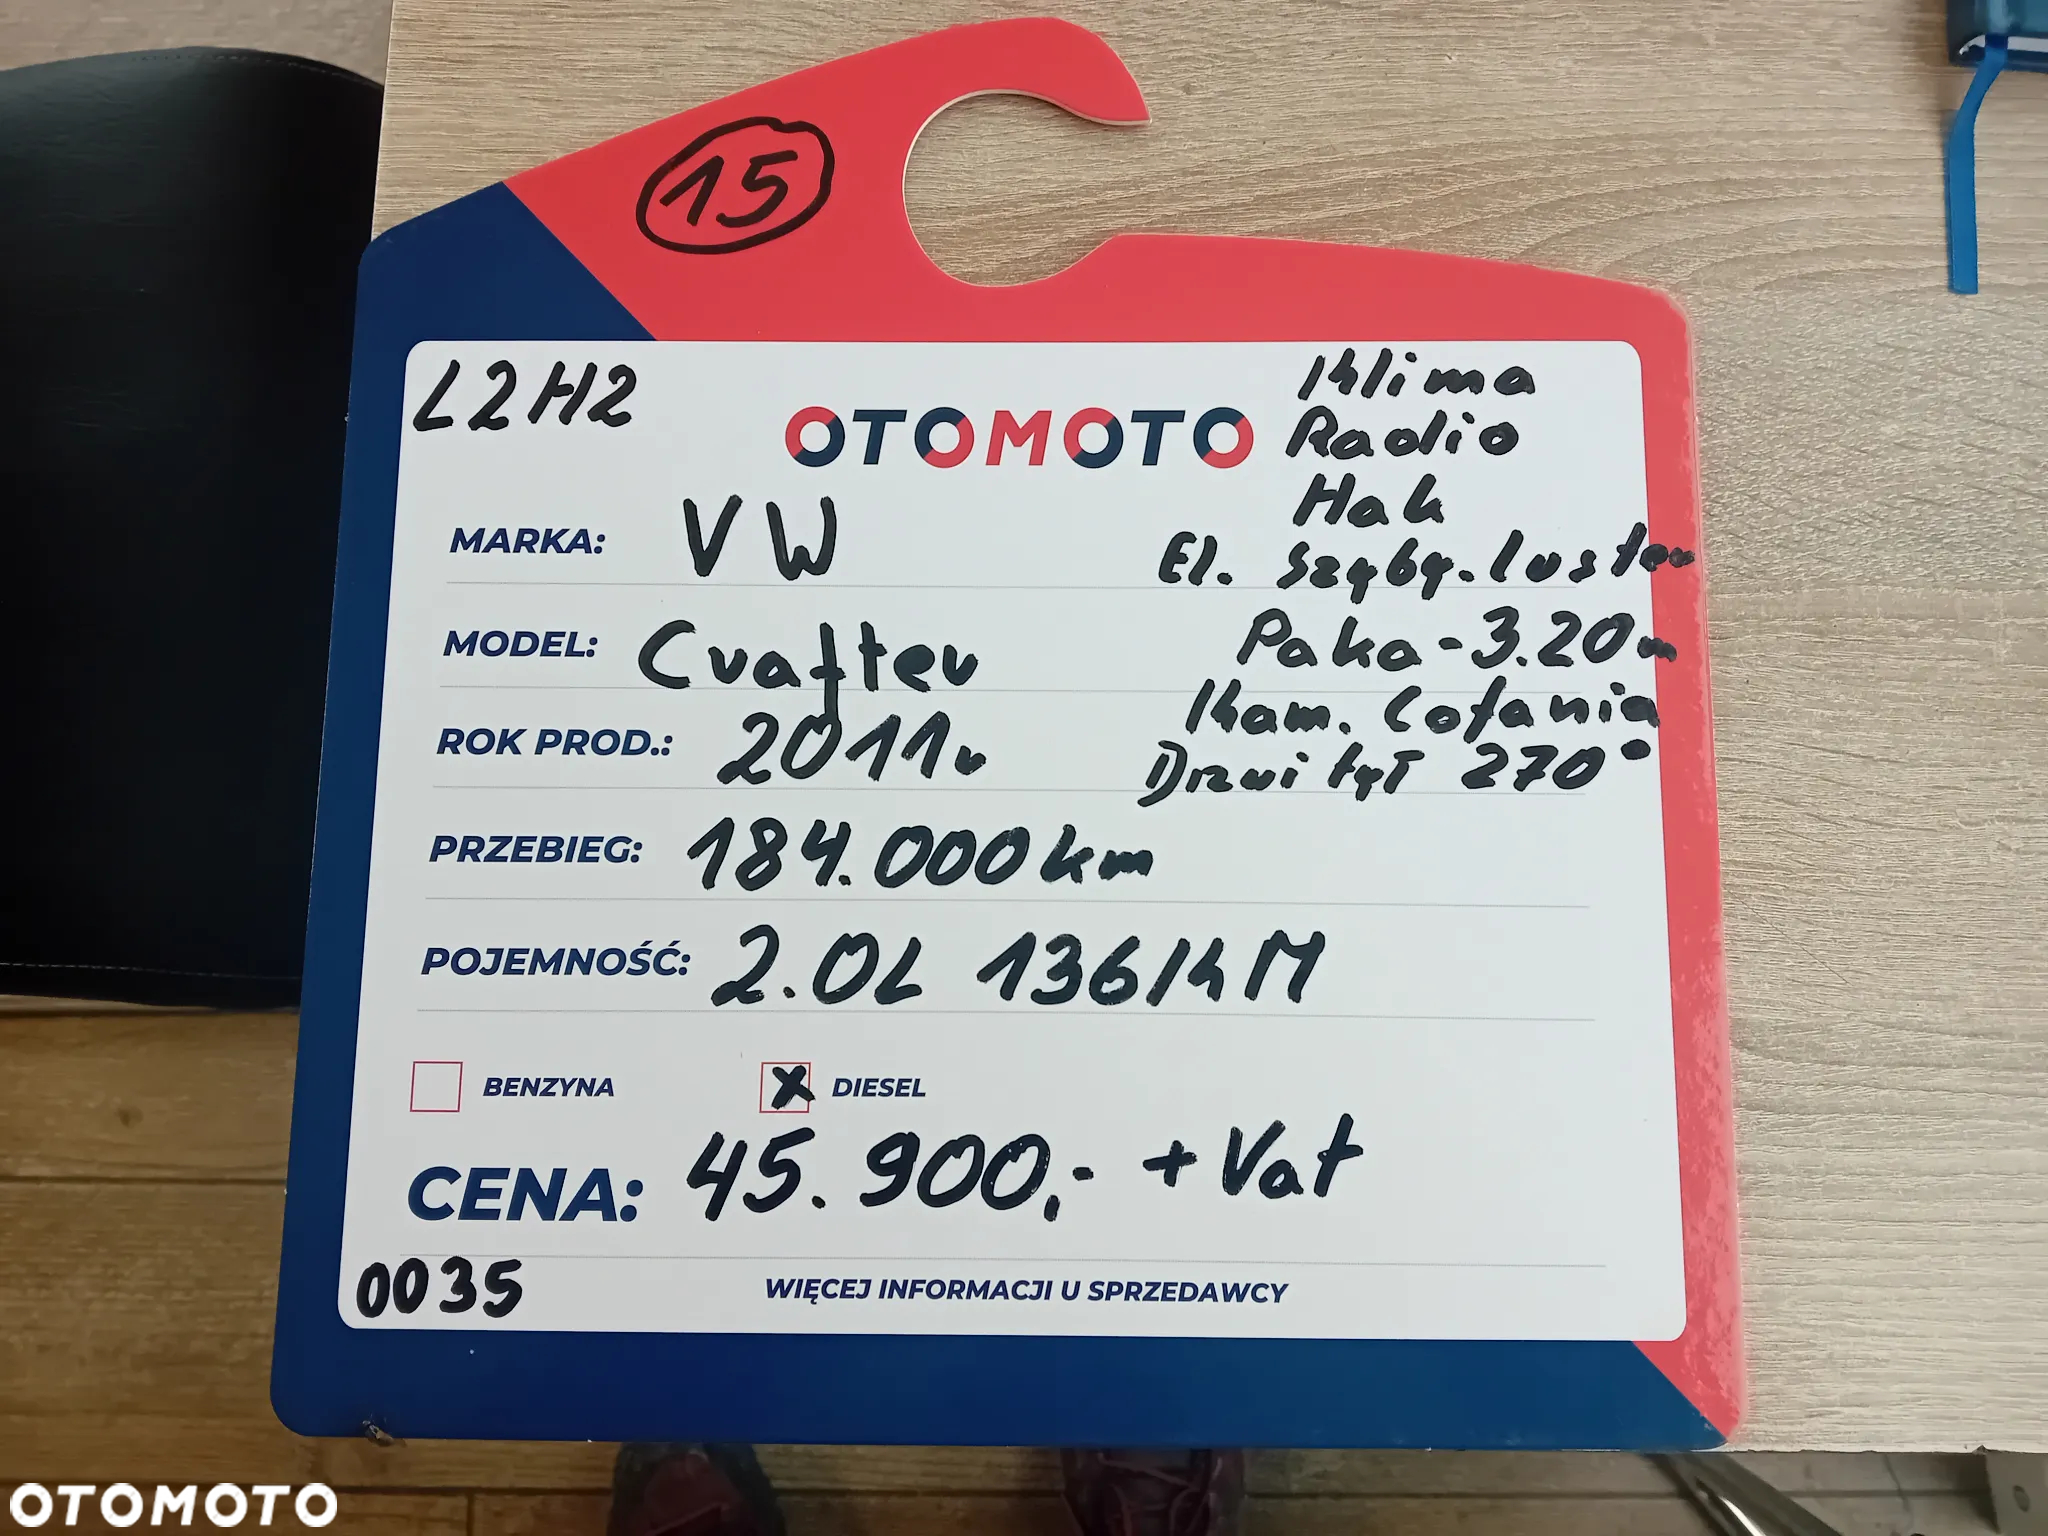 15
L2H2
OTOMOTO
Klima
Radio
Hak
El. Szyby. luster
MARKA: VW
MODEL: Crafter
Paka - 3.20m
Kam. Cofania
ROK PROD.: 2011r
Drzwi tył 270°
PRZEBIEG: 184.000 km
POJEMNOŚĆ: 2.0L 136KM
BENZYNA
X DIESEL
CENA: 45.900,- + Vat
0035
WIĘCEJ INFORMACJI U SPRZEDAWCY
OTOMOTO